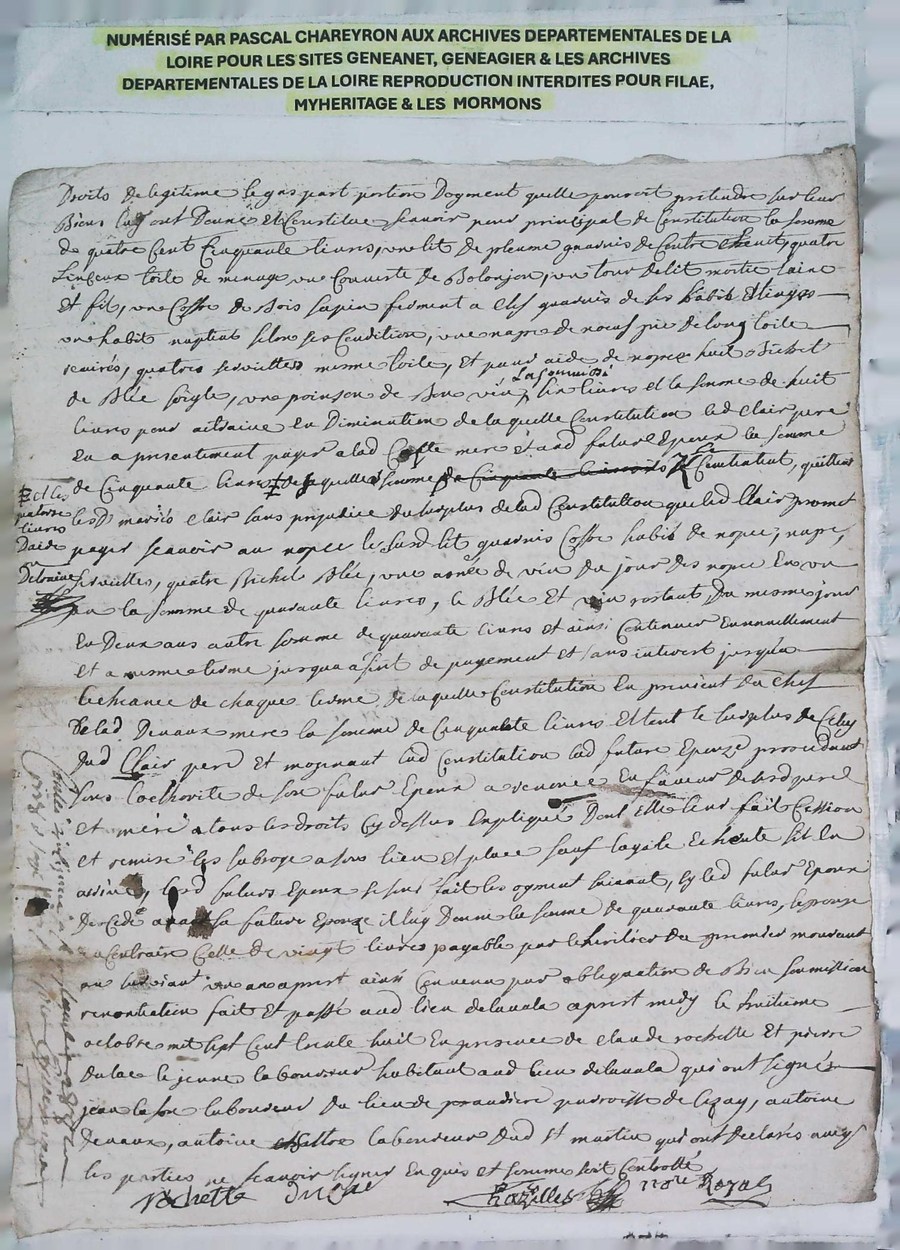 NUMÉRISÉ PAR PASCAL CHAREYRON AUX ARCHIVES DEPARTEMENTALES DE LA
LOIRE POUR LES SITES GENEANET, GENEAGIER & LES ARCHIVES
DEPARTEMENTALES DE LA LOIRE REPRODUCTION INTERDITES POUR FILAE,
MYHERITAGE & LES MORMONS
Droits de legitime legas part portion Dogment quelle pouroit pretendre sur leur
Biens luy ont Donné Et Constitue scavoir pour principal de Constitution la somme
de quatre Cent Cinquante livres, un lit de plume guarnis de Contre quatre
Linceux toile de menage une Couverte de un tour de lit moitié laine
Et fil, une Coffre de Bois sapin ferment a Clef guarnis de ses habit Et linges
une habit nuptial selon ses Condition, une nape de neuf pié de long toile
quatres serviettes mesme toile, Et pour aide de nopce huit Bichet
de Blée soigle, une poinson de Bon vin, six livres et la somme de huit
livres pour En Diminution de laquelle Constitution led Clair pere
En a presentement payer alad mere Et aud futur Epoux la somme
de Cinquante livres de laquelle somme Contentent, quittent
Et les
quatorse
livres
Daide
lesd mariés Clair sans prejudice du surplus de lad Constitution que led Clair promet
payer scavoir au nopce le susd lit guarnis Coffre habit de nopce, nape,
serviettes, quatre Bichet Blée, une anée de vin Du jour des nopce En un
an la somme de quarante livres, le Blée Et vin restant, Du mesme jour
En Deux ans autre somme de quarante livres et ainsi Continuer Annuellement
Et a mesme terme jusqua a fint de payement Et sans interest jusqua
lecheance de chaque terme, de laquelle Constitution En provient du Chef
delad Devaux mere la somme de Cinquante livres Et tout le surplus de Celuy
dud Clair pere Et moyenant lad Constitution lad future Epouze procedant
sous Lauthorite de son futur Epoux a renoncé En faveur de sesd pere
Et mere a tous les droits Cy dessus Expliqué Dont Elle leur fait Cession
Et remise les subroge a son lieu Et place sauf Echeute sil En
arrive, lesd futurs Epoux se sont fait les ogment suivant, sy led futur Epoux
Decede avant sa future Epouze il luy Donne la somme de quarante livres, lepouze
au Contraire Celle de vingt livres payable par le heritier du premier mourant
au survivant un an aprest ainsi Convenu par obliguation de Bien soumission
renontiation fait Et passé aud lieu delavala aprest midy le huitieme
octobre mil sept Cent trente huit En presence de claude rochette Et pierre
Dulac le jeune laboureur habitant aud lieu delavala qui ont signé
jean laboureur du lieu de praudiere parroisse de Cizay, antoine
Devaux, antoine laboureur dud St martin qui ont Declarés avecq
les parties ne scavoir signer Enquis et somme soit Controllé
rochette Dulac Chazelles no.re Royal